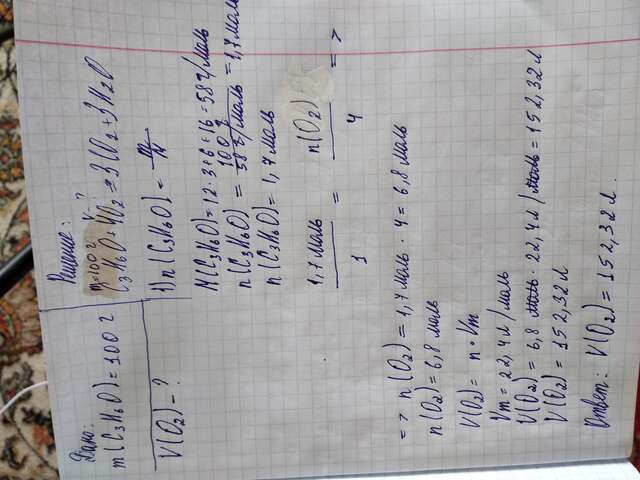 Дано:
m(C₃H₆O) = 100 г
V(O₂) - ?
Решение:
m=100 г V - ?
C₃H₆O + 4O₂ = 3CO₂ + 3H₂O
1) n(C₃H₆O) = m/M
M(C₃H₆O) = 12 · 3 + 6 + 16 = 58 г/моль
n(C₃H₆O) = 100 г / 58 г/моль = 1,7 моль
n(C₃H₆O) = 1,7 моль
1,7 моль / 1 = n(O₂) / 4 =>
=> n(O₂) = 1,7 моль · 4 = 6,8 моль
n(O₂) = 6,8 моль
V(O₂) = n · Vm
Vm = 22,4 л/моль
V(O₂) = 6,8 моль · 22,4 л/моль = 152,32 л
V(O₂) = 152,32 л
Ответ: V(O₂) = 152,32 л.